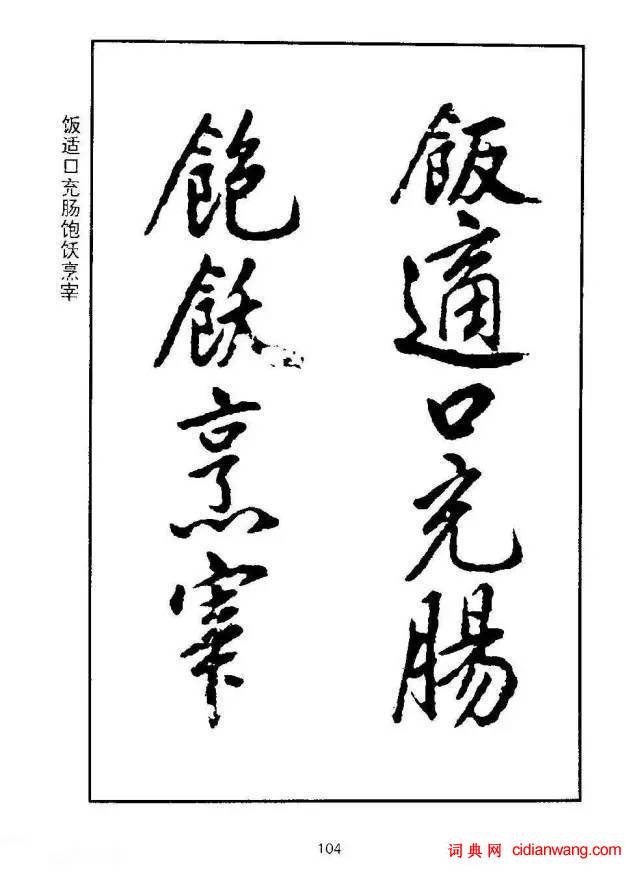 飯適口充腸
飽飫烹宰
饭适口充肠饱饫烹宰
104
词典网 cidianwang.com